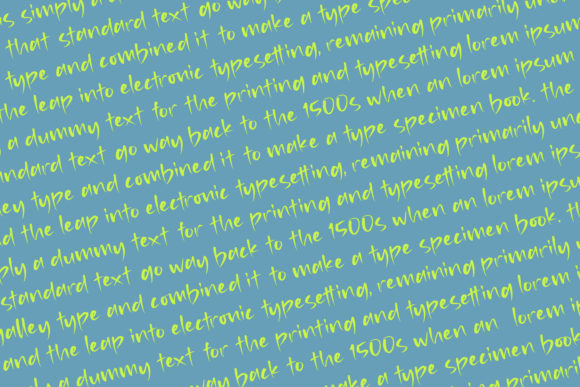 is simply a
that standard text go way
type and combined it to make a type
the leap into electronic typesetting, remaining primarily un
a dummy text for the printing and typesetting lorem ipsum
ndard text go way back to the 1500s when an lorem ipsum
ley type and combined it to make a type specimen book. the
d the leap into electronic typesetting, remaining primarily une
ply a dummy text for the printing and typesetting lorem ips
standard text go way back to the 1500s when an lorem ipsu
galley type and combined it to make a type specimen book. th
and the leap into electronic typesetting, remaining primarily
y a dummy text for the printing and typesetting lorem i
way back to the 1500s when an lorem ip
ke a type specimen book
primari